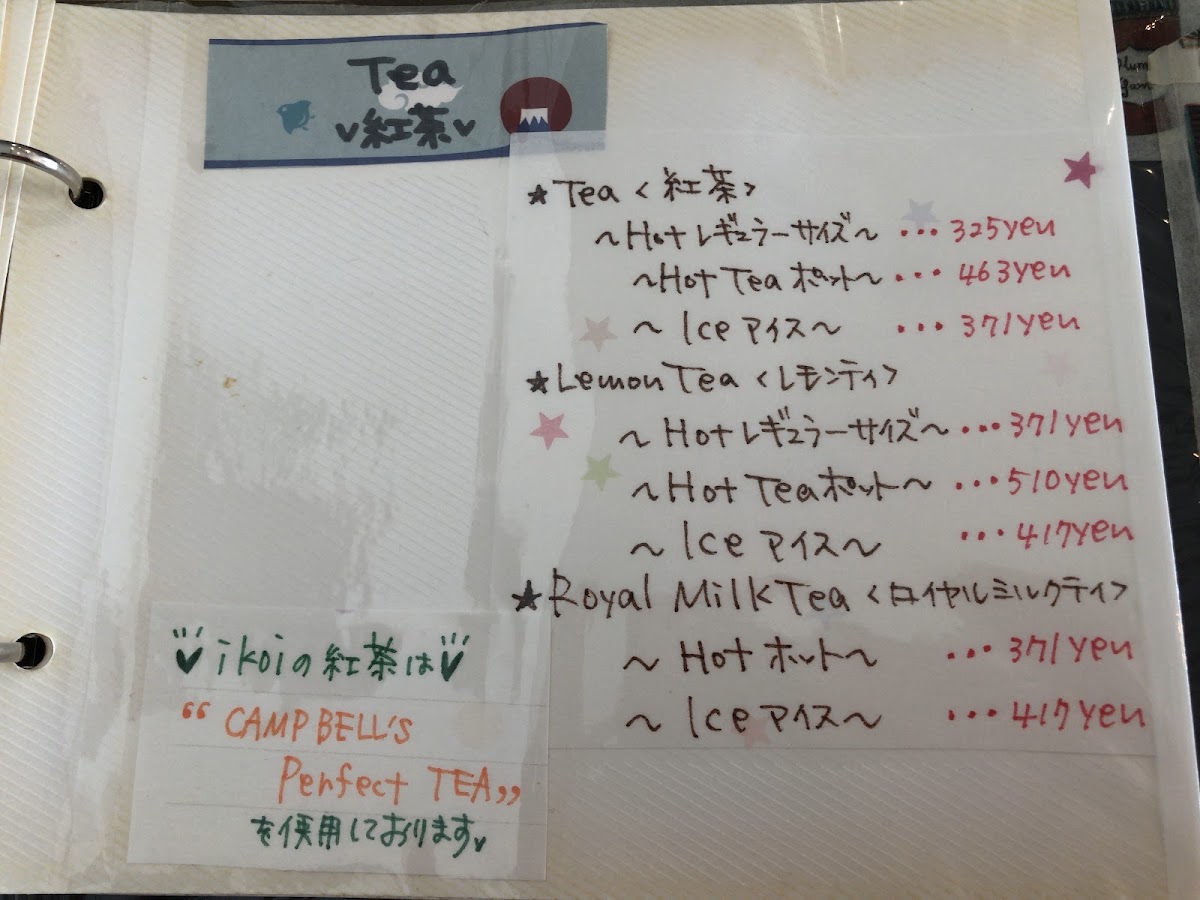 Tea
紅茶
★Tea <紅茶>
~Hotレギュラーサイズ~ ・・・325yen
~Hot Tea ポット~ ・・・463yen
~Ice アイス~ ・・・371yen
★Lemon Tea <レモンティ>
~Hotレギュラーサイズ~ ・・・371yen
~Hot Tea ポット~ ・・・510yen
~Ice アイス~ ・・・417yen
★Royal Milk Tea <ロイヤルミルクティ>
~Hot ホット~ ・・・371yen
~Ice アイス~ ・・・417yen
ikoiの紅茶は
“CAMPBELL'S
Perfect TEA”
を使用しております